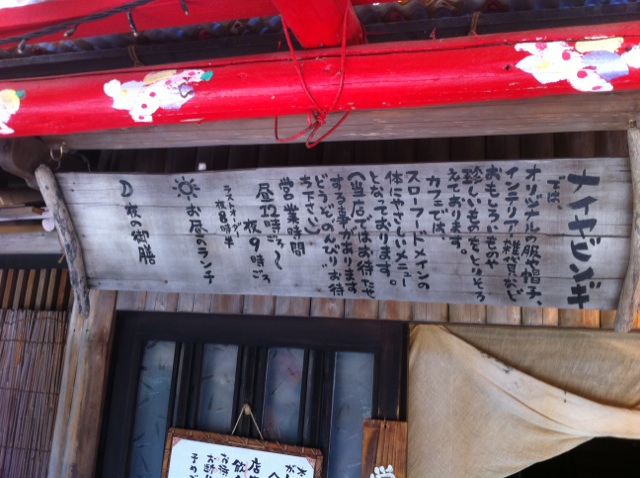 ナイヤビンギ
では、
オリジナル服や帽子、
インテリア・雑貨など
おもしろいものや
珍しいものをとりそろ
えております。
カフェでは、
スローフードメインの
体にやさしいメニュー
となっております。
(当店ではお待たせ
する事があります
どうぞのんびりお待
ち下さい)
営業時間
昼12時ごろ〜
夜9時ごろ
ラストオーダー
夜8時半
お昼のランチ
夜の御膳